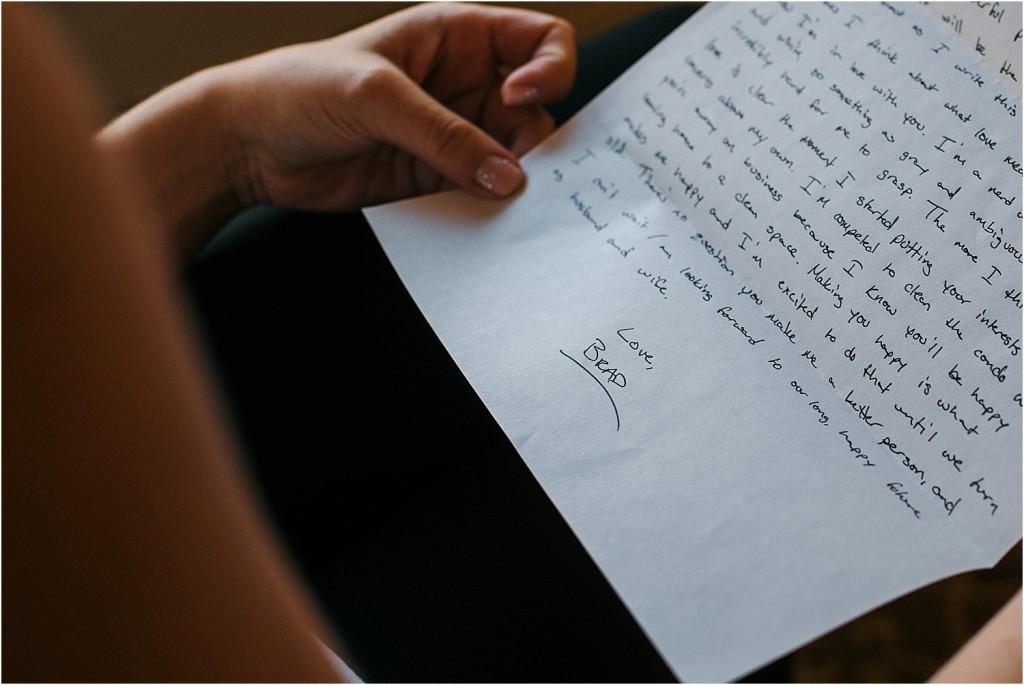 will be the
as I write this
I think about what love mea
I'm in love with you. I'm a nerd
and while so something as gray and ambiguou
incredibly hard for me to grasp. The more I thi
love is clear the moment I started putting your interests
above my own. I'm compelled to clean the condo w
you're away on business because I know you'll be happy
coming home to a clean space. Making you happy is what
makes me happy and I'm excited to do that until we turn
old. There's no question you make me a better person, and
I can't wait/I'm looking forward to our long, happy future
as husband and wife.
Love,
BRAD